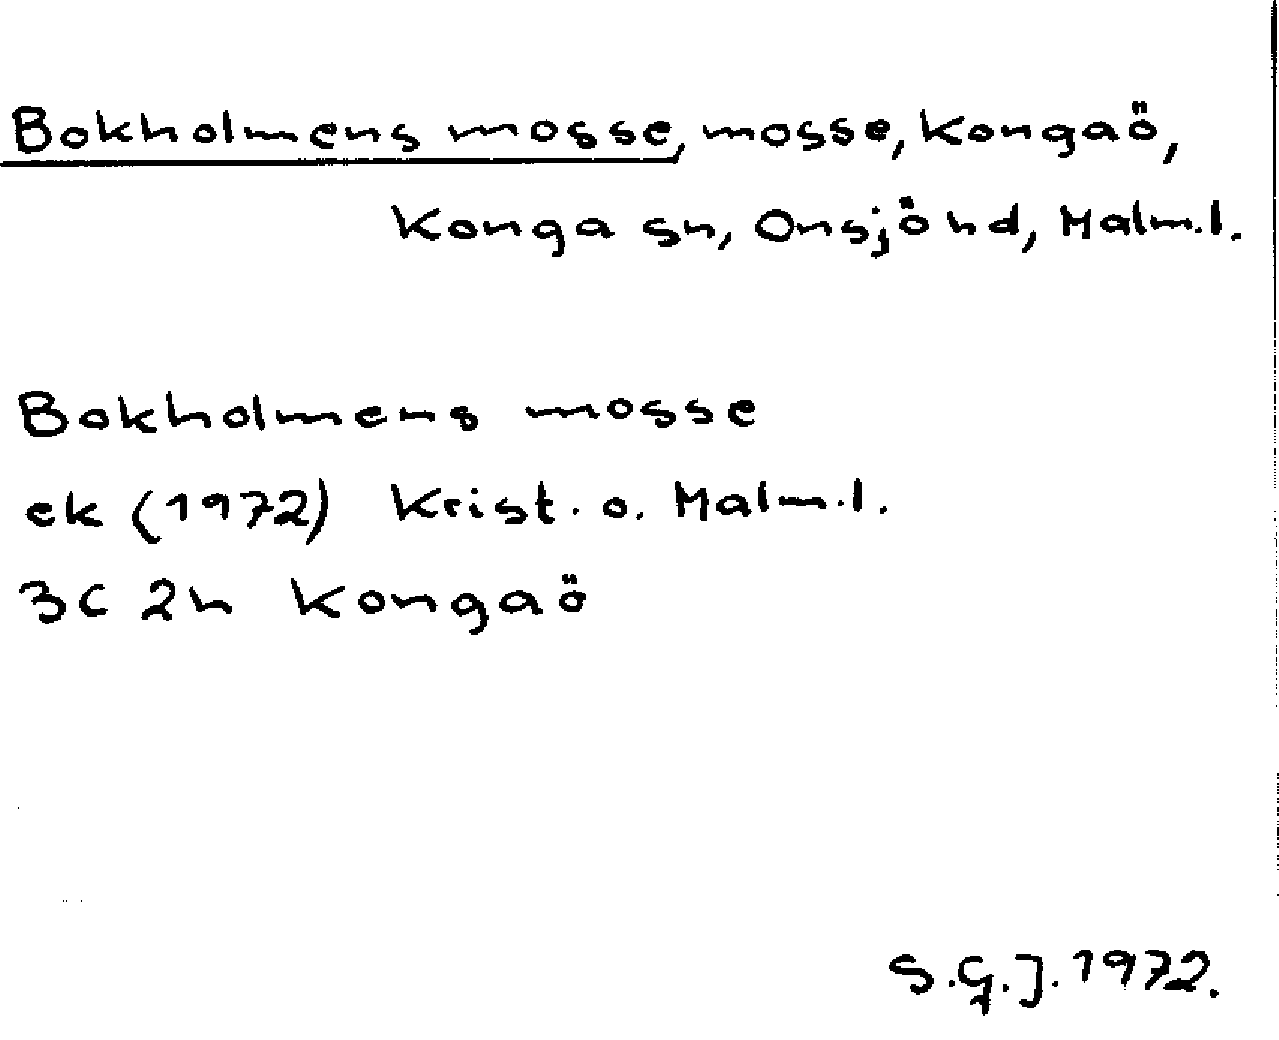 Bokholmens mosse, mosse, Kongaö,
Konga sn, Onsjö hd, Malm.l.
Bokholmens mosse
ek (1972) Krist. o. Malm.l.
3C 2h Kongaö
S.G.J. 1972.